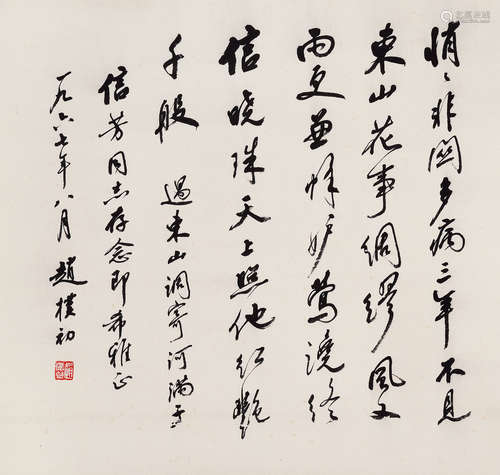 悄悄非關多病三年不見
東山花事綢繆風又
雨更兼情妒鶯譊終
信曉珠天上照他紅艷
千般 過東山調寄河滿子
信芳同志存念即希雅正
一九六七年八月 趙樸初